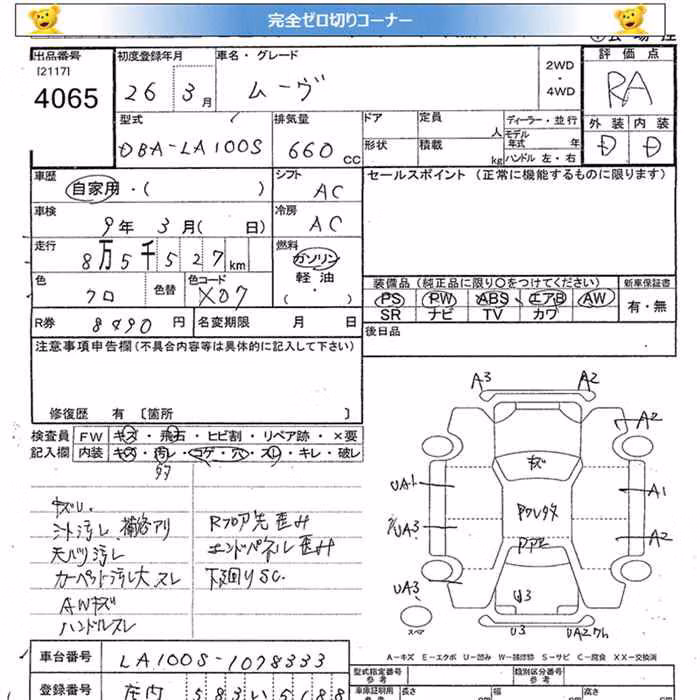 完全ゼロ切りコーナー
出品番号
[2117]
4065
初度登録年月
26 3月
車名・グレード
ムーヴ
2WD
・
4WD
評価点
RA
外装 内装
D D
型式
DBA-LA100S
排気量
660 cc
ドア
形状
定員 人
積載 kg
ディーラー・並行
モデル年式 年
ハンドル 左・右
車歴
自家用・( )
シフト
AC
セールスポイント (正常に機能するものに限ります)
車検
9年 3月( 日)
冷房
AC
走行
8万5千527km
燃料
ガソリン
軽油
( ・ )
色
クロ
色替
色コード
X07
装備品 (純正品に限り○をつけてください)
PS PW ABS エアB AW
SR ナビ TV カワ
新車保証書
有・無
R券 8490円
名変期限 月 日
後日品
注意事項申告欄(不具合内容等は具体的に記入して下さい)
修復歴 有 [箇所 ]
検査員
記入欄
FW キズ・飛石・ヒビ割・リペア跡・×要
内装 キズ・汚レ・コゲ・穴・スレ・キレ・破レ
シート汚レ 補修アリ
天バリ汚レ
カーペット汚レ大 スレ
AWキズ
ハンドルスレ
Rフロア先歪み
エンドパネル歪み
下回りSC.
A3 A2
A2
キズ
UA1
A1
UA3
A2
UA3
U3
U3
スペア
A-キズ E-エクボ U-凹み W-補修跡 S-サビ C-腐食 XX-交換済
車台番号
LA100S-1078333
登録番号
庄内 583 い 5188
型式指定番号
参考
類別区分番号
参考
車庫証明用
参考
長さ
幅
高さ